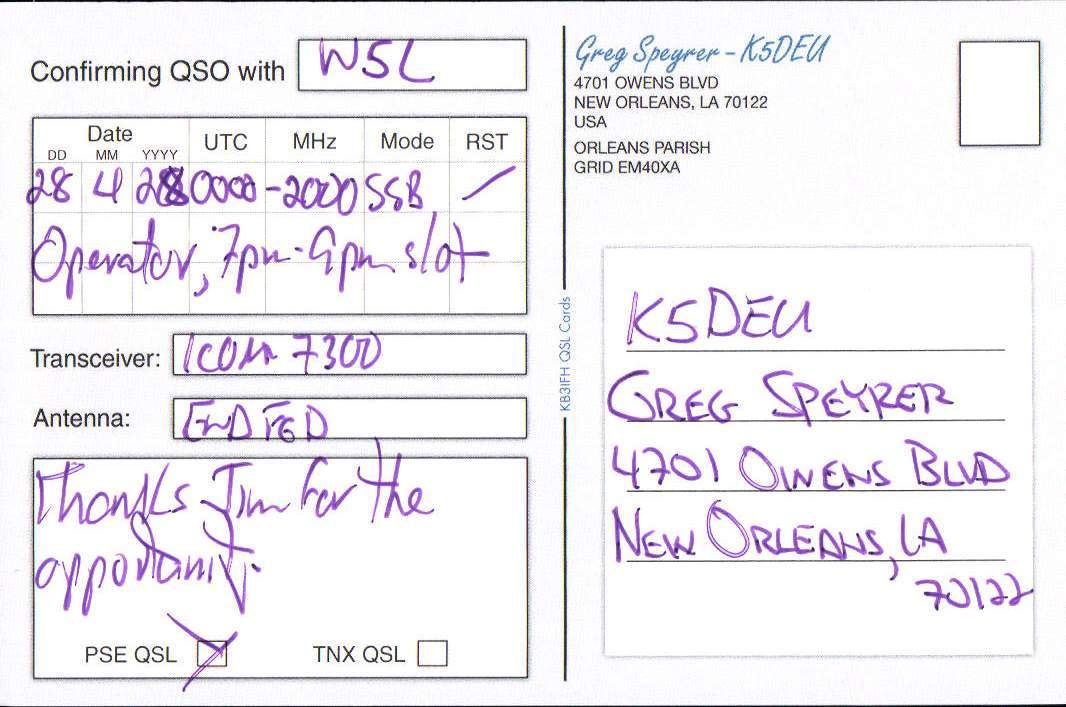 Confirming QSO with W5L
Date UTC MHz Mode RST
DD MM YYYY
28 4 0000-2000 SSB /
Operator, 7pm-9pm slot
Transceiver: ICOM 7300
Antenna: END FED
Thanks Jim for the
opportunity.
PSE QSL TNX QSL
KB3IFH QSL Cards
Greg Speyrer - K5DEU
4701 OWENS BLVD
NEW ORLEANS, LA 70122
USA
ORLEANS PARISH
GRID EM40XA
K5DEU
GREG SPEYRER
4701 OWENS BLVD
NEW ORLEANS, LA
70122